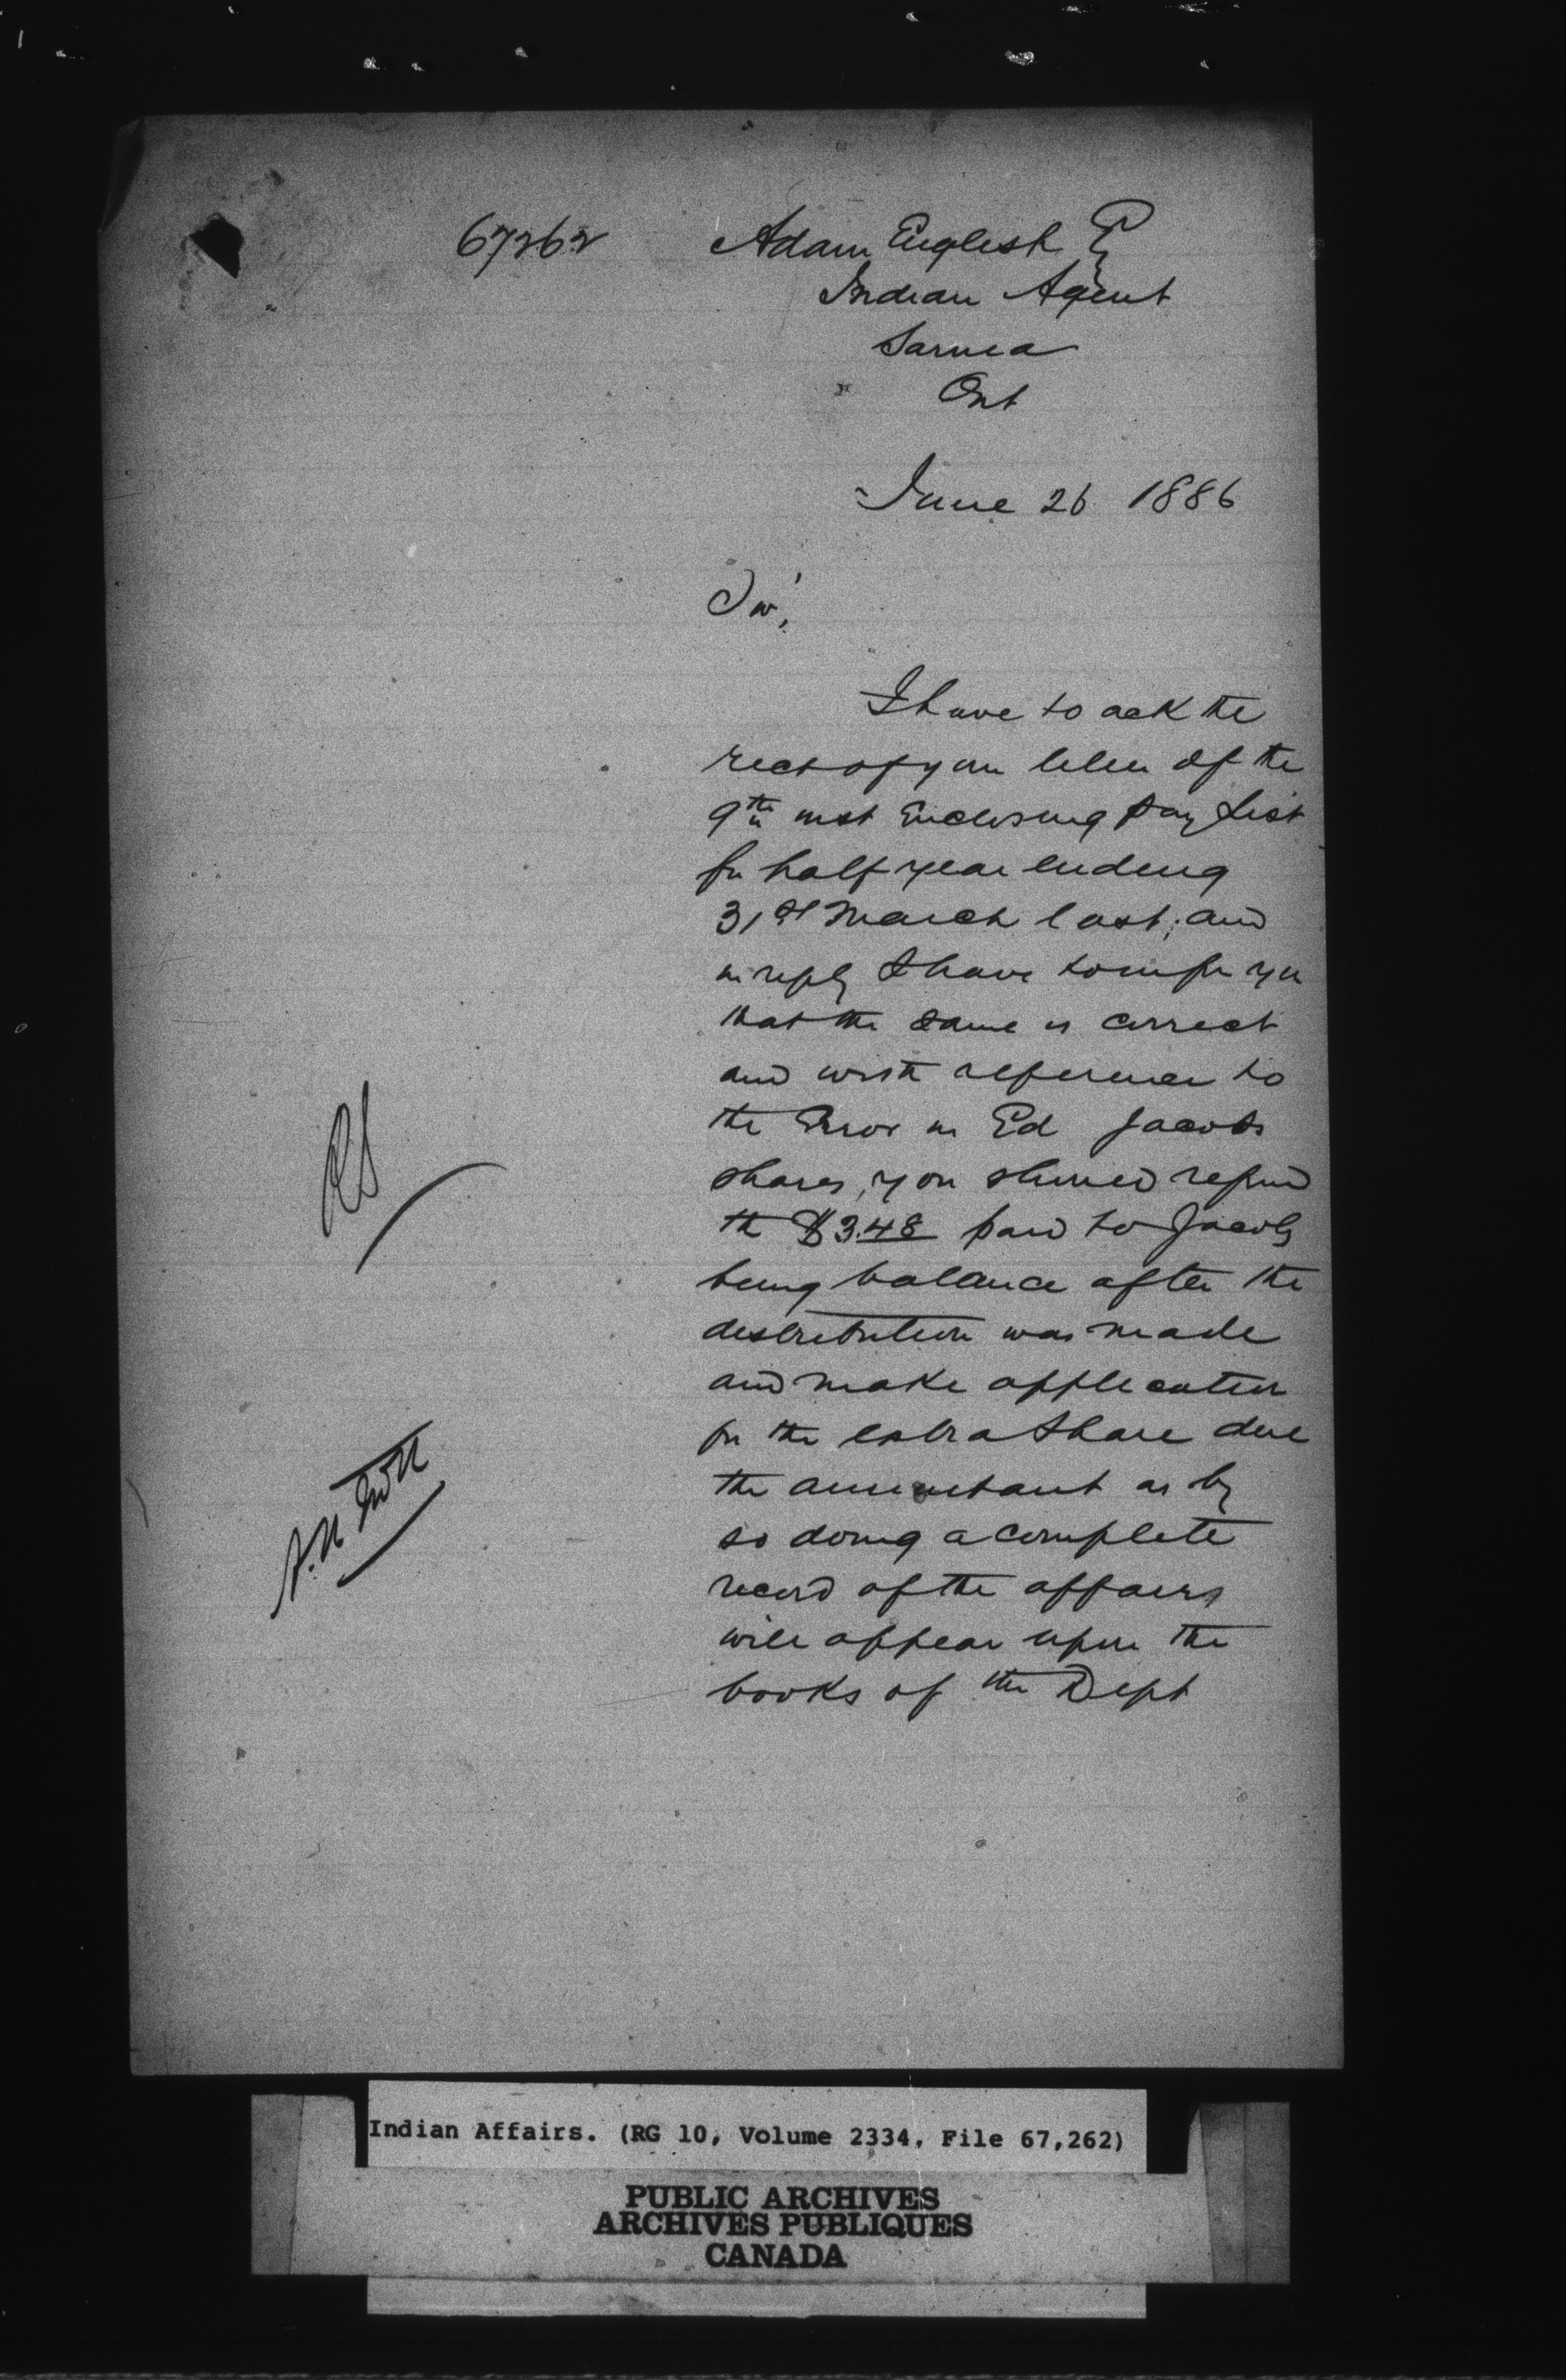 67262
Adam English Esq
Indian Agent
Sarnia
Ont
June 26 1886
Sir,
I have to ack the
rect of your letter of the
9th inst Enclosing Pay List
for half year ending
31st March last; and
in reply I have to infr you
that the same is correct
and with reference to
the Error in Ed Jacobs
shares, you should refund
the $3.48 paid to Jacobs
being balance after the
distribution was made
and make application
for the extra share due
the annuitant as by
so doing a complete
record of the affairs
will appear upon the
books of the Dept
Indian Affairs. (RG 10, Volume 2334, File 67,262)
PUBLIC ARCHIVES
ARCHIVES PUBLIQUES
CANADA